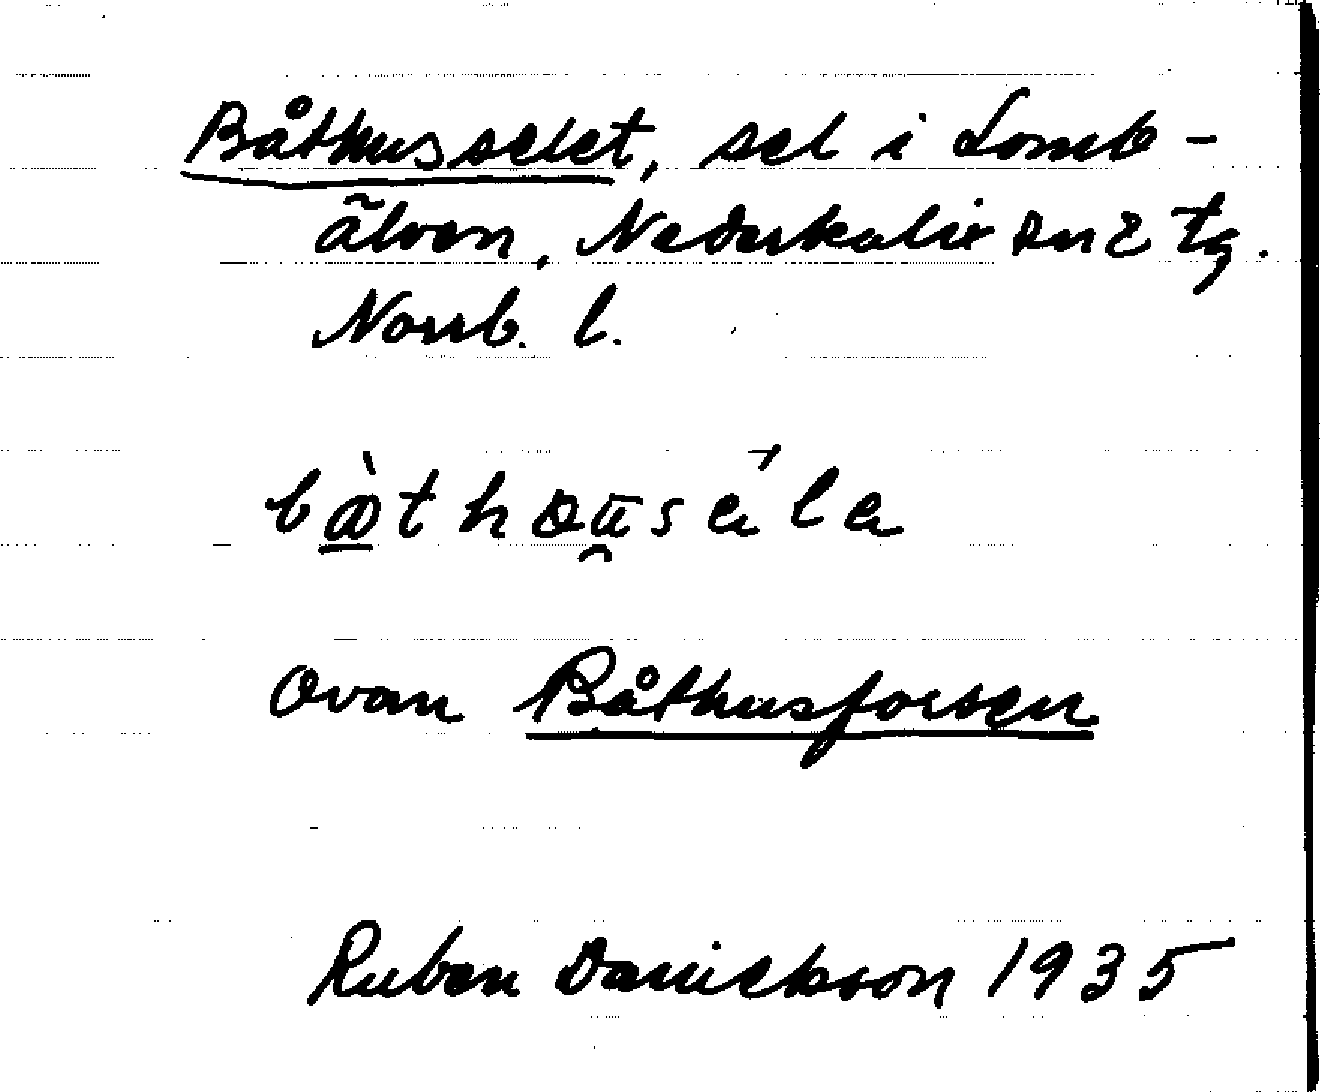 Båthusselet, sel i Lomb-
älven, Nederkalix sn 2 tg.
Norrb. l.
Ovan Båthusforsen
Ruben Danielsson 1935